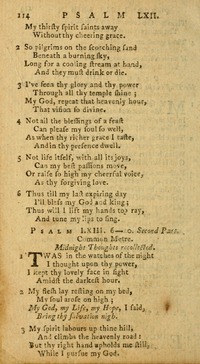 214 PSALM LXII.
My thirsty spirit faints away
Without thy cheering grace.
2 So pilgrims on the scorching sand
Beneath a burning sky,
Long for a cooling stream at hand,
And they must drink or die.
3 I've seen thy glory and thy power
Through all thy temple shine;
My God, repeat that heavenly hour,
That vision so divine.
4 Not all the blessings of a feast
Can please my soul so well,
As when thy richer grace I taste,
And in thy presence dwell.
5 Not life itself, with all its joys,
Can my best passions move,
Or raise so high my cheerful voice,
As thy forgiving love.
6 Thus till my last expiring day
I'll bless my God and king;
Thus will I lift my hands to pray,
And tune my lips to sing.
PSALM LXIII. 6—10. Second Part.
Common Metre.
Midnight Thoughts recollected.
1 'TWAS in the watches of the night
I thought upon thy power,
I kept thy lovely face in sight
Amidst the darkest hour.
2 My flesh lay resting on my bed,
My soul arose on high;
My God, my Life, my Hope, I said,
Bring thy salvation nigh.
3 My spirit labours up thine hill,
And climbs the heavenly road;
But thy right hand upholds me still,
While I pursue my God.